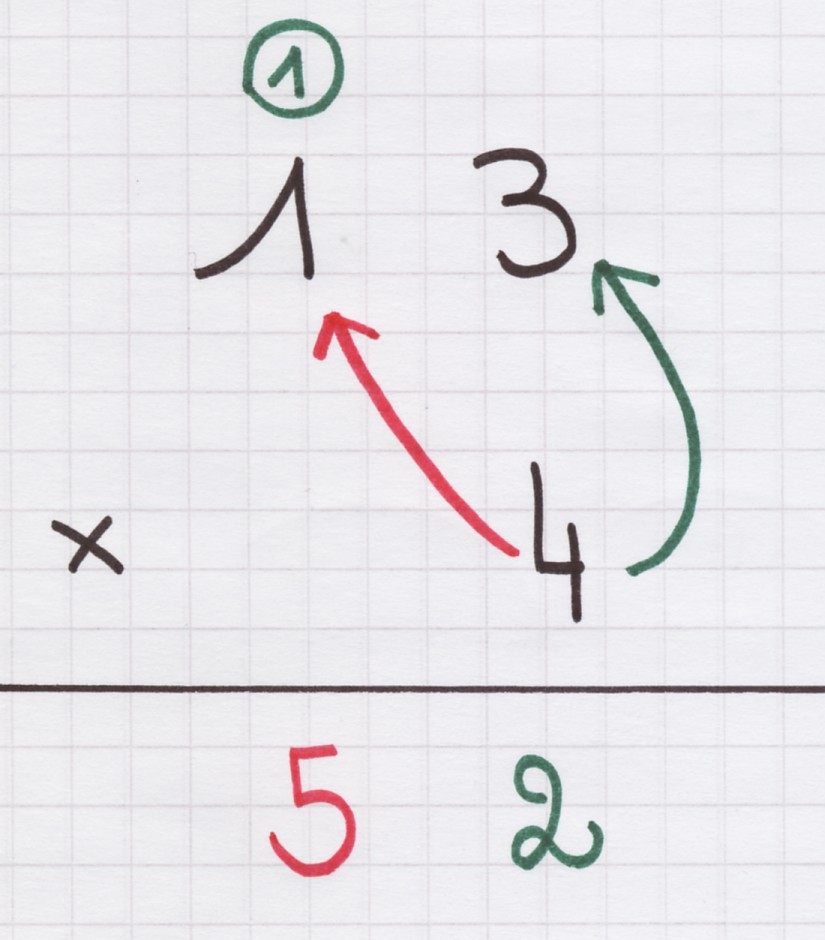 1
1 3
× 4
5 2